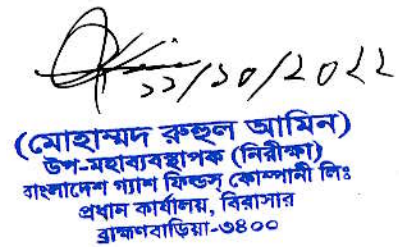 ১১/১০/২০২২
(মোহাম্মদ রুহুল আমিন)
উপ-মহাব্যবস্থাপক (নিরীক্ষা)
বাংলাদেশ গ্যাশ ফিল্ডস্ কোম্পানী লিঃ
প্রধান কার্যালয়, বিরাসার
ব্রাহ্মণবাড়িয়া-৩৪০০